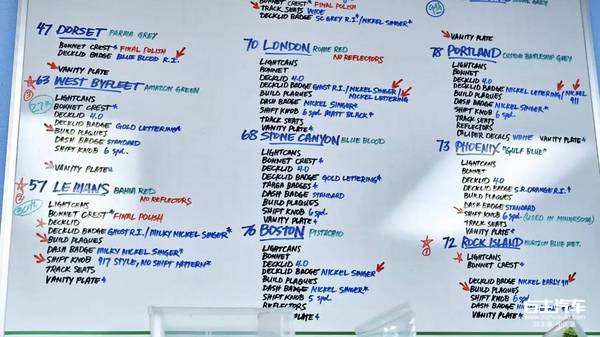 47 DORSET PARMA GREY
BONNET CREST* FINAL POLISH
DECKLID BADGE BLUE BLOOD R.I.
VANITY PLATE
63 WEST BYFLEET AMAZON GREEN
LIGHTCANS
BONNET CREST*
DECKLID 4.0
DECKLID BADGE GOLD LETTERING*
BUILD PLAQUES
DASH BADGE STANDARD
SHIFT KNOB 6 spd.
VANITY PLATE*
57 LEMANS BAHIA RED
NO REFLECTORS
LIGHTCANS
BONNET CREST* FINAL POLISH
DECKLID
DECKLID BADGE GHOST R.I./MILKY NICKEL SINGER*
BUILD PLAQUES
DASH BADGE MILKY NICKEL SINGER*
SHIFT KNOB 917 STYLE, NO SHIFT PATTERN*
TRACK SEATS
VANITY PLATE*
TRACK SEATS WIDE
DECKLID BADGE SC GREY R.I./NICKEL SINGER*
70 LONDON ROUGE RED
NO REFLECTORS
LIGHTCANS
BONNET
DECKLID 4.0
DECKLID BADGE GHOST R.I./NICKEL SINGER/
BUILD PLAQUES NICKEL LETTERING
DASH BADGE NICKEL SINGER*
SHIFT KNOB 6 spd. MATT BLACK*
TRACK SEATS
VANITY PLATE*
68 STONE CANYON BLUE BLOOD
BONNET CREST*
DECKLID
DECKLID BADGE GOLD LETTERING*
TARGA BADGES
DASH BADGE STANDARD
SHIFT KNOB 6 spd.
VANITY PLATE*
76 BOSTON PISTACHIO
LIGHTCANS
BONNET
DECKLID 4.0
DECKLID BADGE NICKEL SINGER
BUILD PLAQUES
DASH BADGE NICKEL SINGER*
SHIFT KNOB 5 spd.
REFLECTORS
PLATE*
VANITY PLATE
78 PORTLAND CUSTOM BATTLESHIP GREY
LIGHTCANS
BONNET
DECKLID 4.0
DECKLID BADGE NICKEL LETERING/NICKEL 911
BUILD PLAQUES
DASH BADGE NICKEL SINGER*
SHIFT KNOB 6 spd.
TRACK SEATS
REFLECTORS
OUTER DECALS WHITE VANITY PLATE*
73 PHOENIX "GULF BLUE"
LIGHTCANS
BONNET
DECKLID 4.0
DECKLID BADGE S.R. ORANGE R.I.
BUILD PLAQUES
DASH BADGE STANDARD
SHIFT KNOB 6 spd.
VANITY PLATE*
72 ROCK ISLAND HORIZON BLUE MET.
LIGHTCANS
BONNET CREST*
DECKLID BADGE NICKEL EARLY 911
BUILD PLAQUES
SHIFT KNOB 6 spd.
DASH BADGE NICKEL SINGER*
VANITY PLATE*